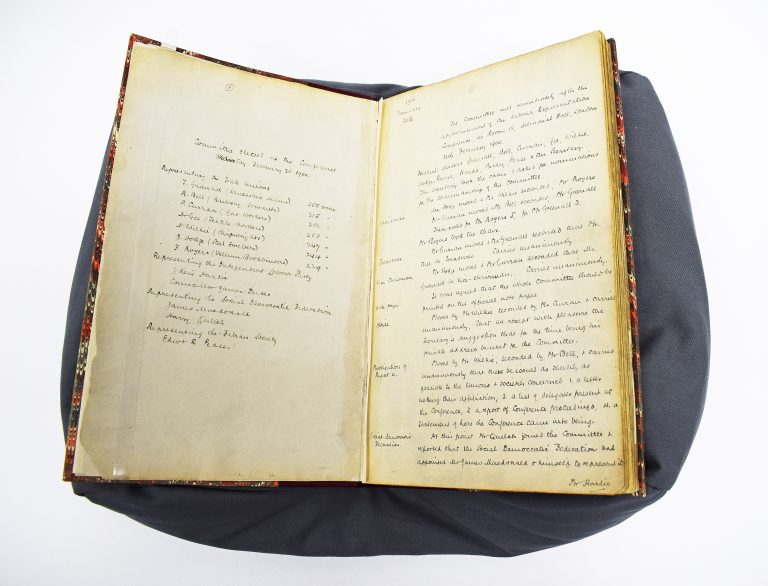 1
Committee elected at the Conference
Wednesday February 28 1900.
Representing the Trade Unions
T. Greenall (Lancashire Miners)
R. Bell (Railway Servants)
P. Curran (Gas Workers)
A. Gee (Textile Workers)
A. Wilkie (Shipwrights)
J. Hodge (Steel Smelters)
F. Rogers (Vellum Bookbinders)
Representing the Independent Labour Party
J. Keir Hardie
Councillor James Parker
Representing the Social Democratic Federation
James Macdonald
Harry Quelch
Representing the Fabian Society
Edwd R. Pease
1900
February
28th
The Committee met immediately after the
appointment of the Labour Representation
Conference, in Room 15, Memorial Hall, London
28th February, 1900.
Present: Messrs Greenall, Bell, Curran, Gee, Wilkie,
Hodge, Rogers, Hardie, Parker, Pease & the Secretary.
The Secretary took the chair & asked for nominations
for the Chairmanship of the Committee.
Chairman
Mr Hodge moved & Mr Wilkie seconded, Mr Rogers
Mr Curran moved & Mr Bell seconded, Mr Greenall
There voted for Mr Rogers 5, for Mr Greenall 3.
Mr Rogers took the chair.
Treasurer
Mr Curran moved & Mr Greenall seconded that Mr
Gee be Treasurer. Carried unanimously
Vice Chairman
Mr Hodge moved & Mr Curran seconded that Mr
Greenall be Vice-chairman. Carried unanimously.
Note Paper
It was agreed that the whole Committee should be
printed on the official note paper.
Moved by Mr Wilkie seconded by Mr Curran & carried
unanimously, That we accept with pleasure the
Secretary's suggestion that for the time being his
private address be used for the Committee.
Publication of
Report &c.
Moved by Mr Wilkie, seconded by Mr Bell, & carried
unanimously that there be issued as speedily as
possible to the Unions & societies concerned 1. a letter
asking their affiliation, 2 a list of delegates present at
the Conference, 3 a report of Conference proceedings, 4 a
statement of how the Conference came into being.
Social Democratic
Federation
At this point Mr Quelch joined the Committee &
reported that the Social Democratic Federation had
appointed Mr James Macdonald & himself to represent it.
Mr Hardie